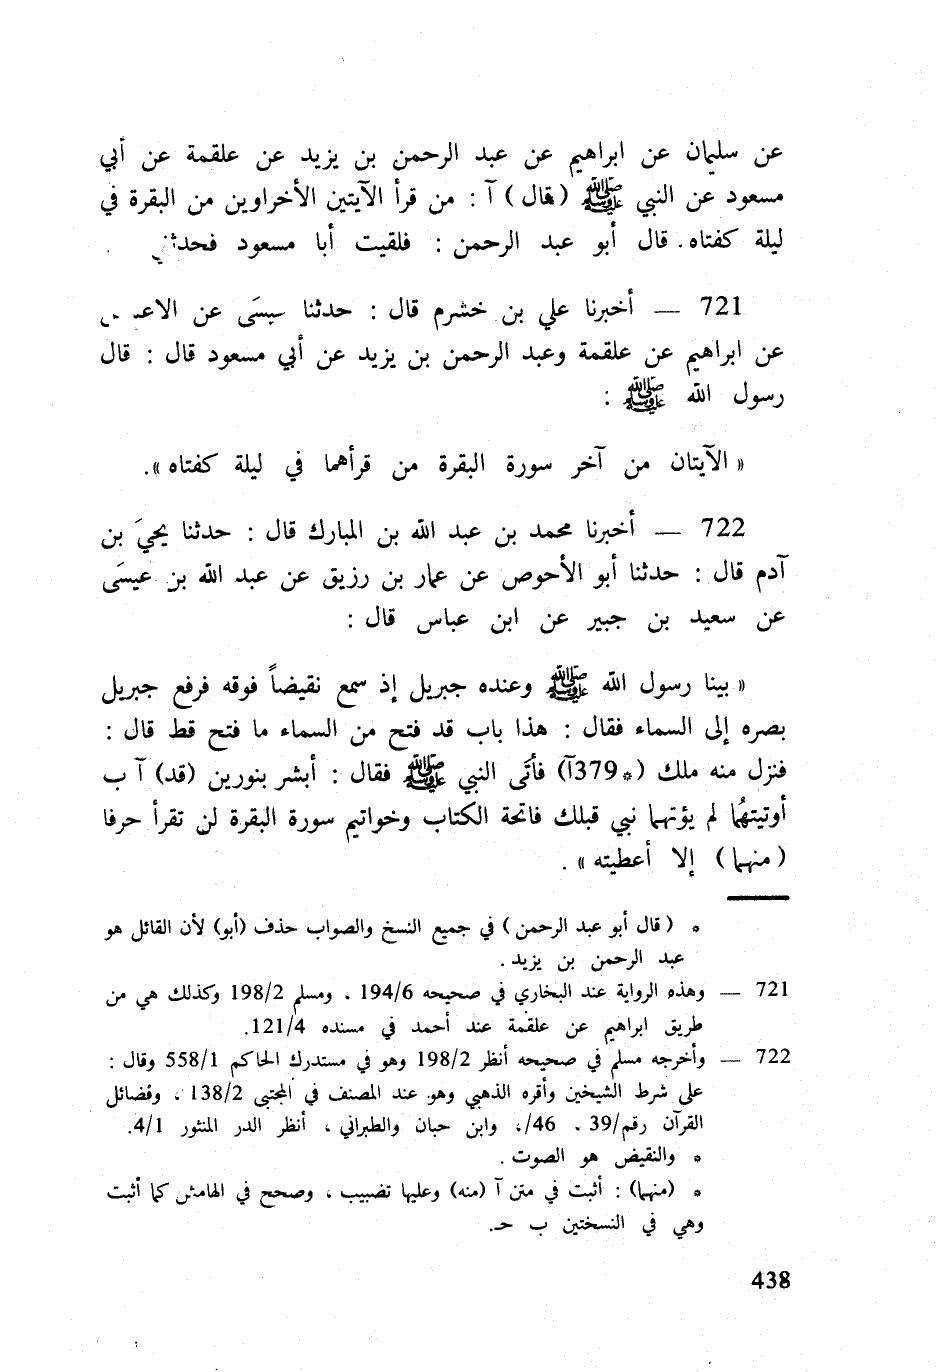 عن سليمان عن ابراهيم عن عبد الرحمن بن يزيد عن علقمة عن أبي
مسعود عن النبي ﷺ (قال) آ : من قرأ الآيتين الأخراوين من البقرة في
ليلة كفتاه. قال أبو عبد الرحمن : فلقيت أبا مسعود
721 — أخبرنا علي بن خشرم قال : حدثنا عن
عن ابراهيم عن علقمة وعبد الرحمن بن يزيد عن أبي مسعود قال : قال
رسول الله ﷺ :
« الآيتان من آخر سورة البقرة من قرأهما في ليلة كفتاه ».
722 — أخبرنا محمد بن عبد الله بن المبارك قال : حدثنا يحيَ بن
آدم قال : حدثنا أبو الأحوص عن عمار بن رزيق عن عبد الله بن عيسَى
عن سعيد بن جبير عن ابن عباس قال :
« بينا رسول الله ﷺ وعنده جبريل إذ سمع نقيضاً فوقه فرفع جبريل
بصره إلى السماء فقال : هذا باب قد فتح من السماء ما فتح قط قال :
فنزل منه ملك (*379آ) فأتَى النبي ﷺ فقال : أبشر بنورين (قد) آ ب
أوتيتهُما لم يؤتهما نبي قبلك فاتحة الكتاب وخواتيم سورة البقرة لن تقرأ حرفا
(منهما) إلا أعطيته » .
* ( قال أبو عبد الرحمن ) في جميع النسخ والصواب حذف (أبو) لأن القائل هو
عبد الرحمن بن يزيد .
721 — وهذه الرواية عند البخاري في صحيحه 194/6 . ومسلم 198/2 وكذلك هي من
طريق ابراهيم عن علقمة عند أحمد في مسنده 121/4.
722 — وأخرجه مسلم في صحيحه أنظر 198/2 وهو في مستدرك الحاكم 558/1 وقال :
على شرط الشيخين وأقره الذهبي وهو عند المصنف في المجتبى 138/2 ، وفضائل
القرآن رقم/39 . 46/، وابن حبان والطبراني ، أنظر الدر المنثور 4/1.
* والنقيض هو الصوت .
* (منهما) : أثبت في متن آ (منه) وعليها تضبيب ، وصحح في الهامش كما أثبت
وهي في النسختين ب حـ.
438